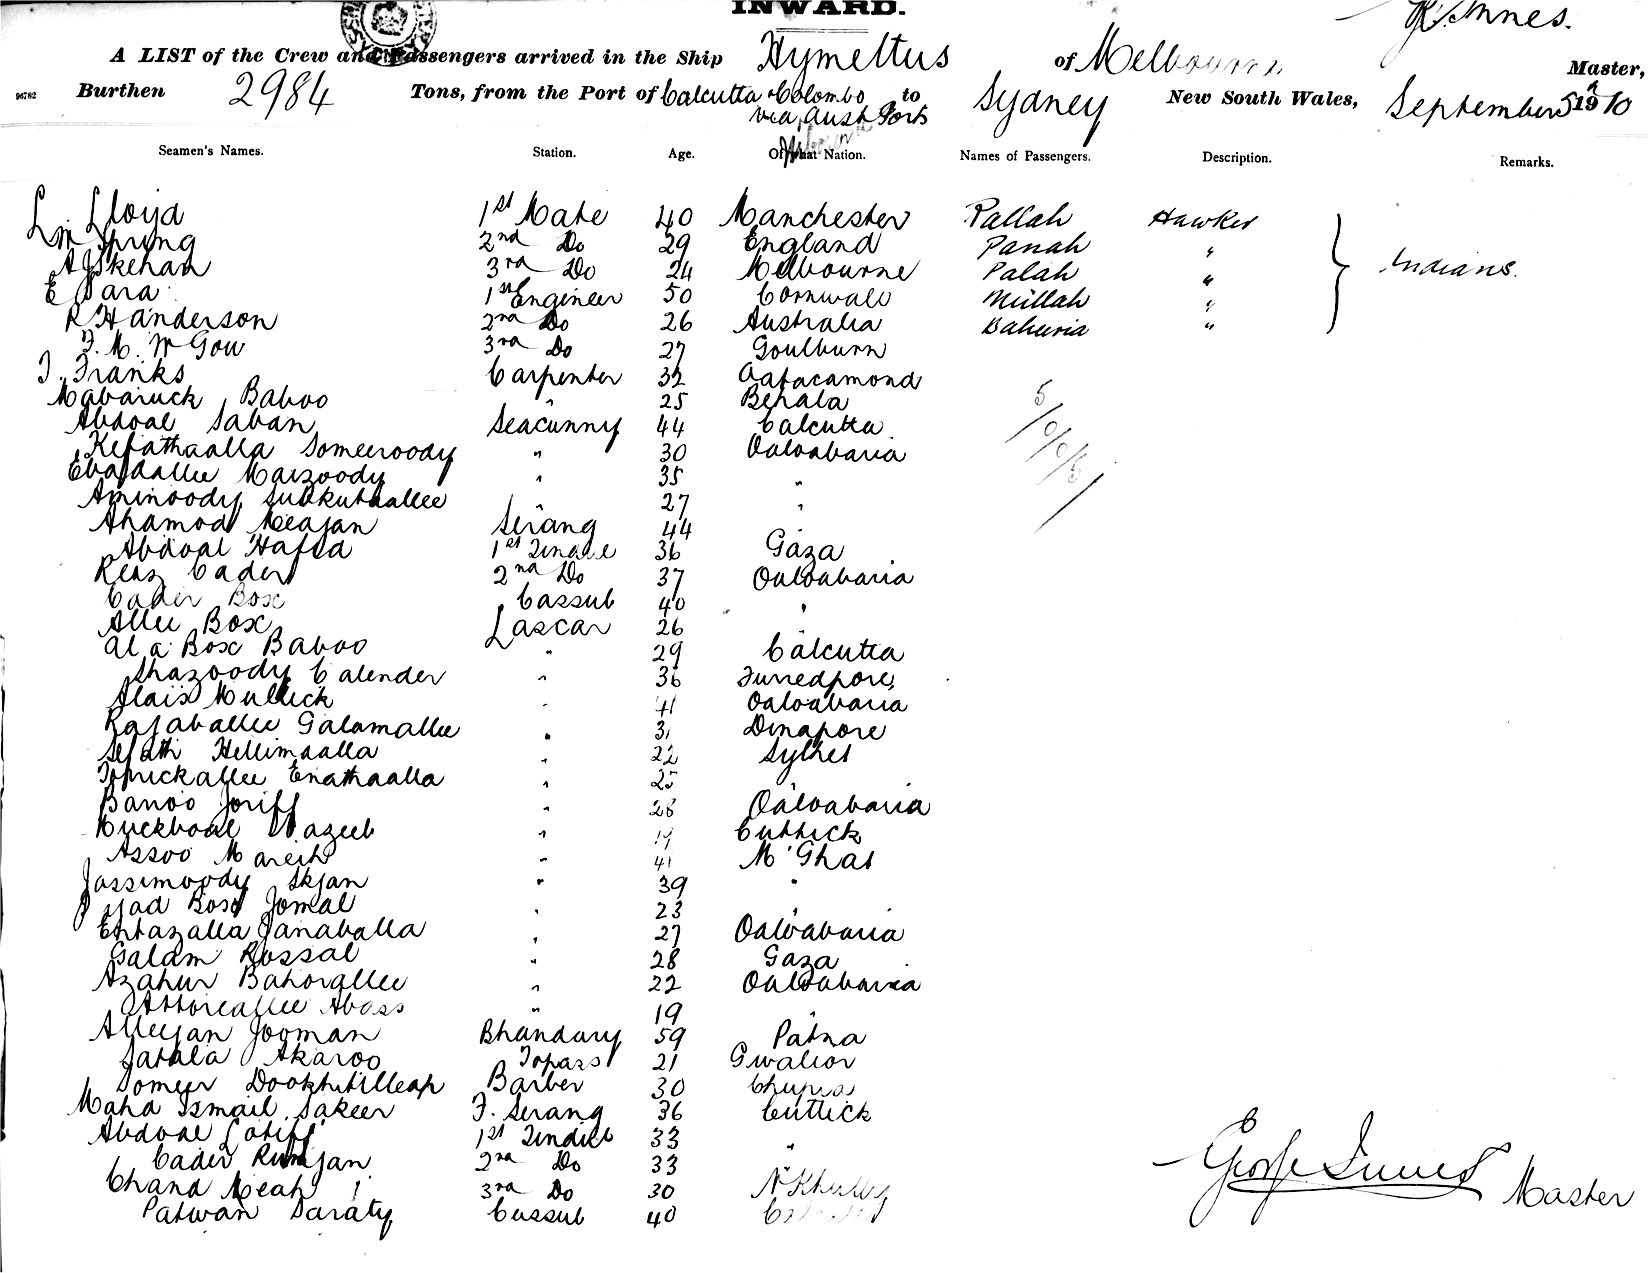 INWARD.
Innes.
A LIST of the Crew and Passengers arrived in the Ship Hymettus of Melbourne Master,
96782 Burthen 2984 Tons, from the Port of Calcutta & Colombo to Sydney New South Wales, September 5 1910
via Aust Ports
Seamen's Names. Station. Age. Of what Nation. Names of Passengers. Description. Remarks.
L. Lloyd 1st Mate 40 Manchester Pallah Hawker
Wm Spring 2nd Do 29 England Panah "
A J Skehan 3rd Do 24 Melbourne Palah " Indians.
E Para 1st Engineer 50 Cornwall Mullah "
R H Anderson 2nd Do 26 Australia Bahuria "
3rd Do 27 Goulburn
J. Franks Carpenter 32 Oatacamond
Mabaruck Baboo " 25 Berala
Abdoal Saban Seacunny 44 Calcutta
Kefathaalla Someeroody " 30 Oaloabaria
Ebadallee Maizoody " 35 "
Aminoody 27 "
Ahamod Meajan Serang 44 "
Abdoal Hafea 1st Tindle 36 Gaza
Reaz Cader 2nd Do 37 Oaloabaria
Cader Box Cassub 40 "
Allee Box Lascar 26 "
Ala Box Baboo " 29 Calcutta
Shazoody Calender " 36
Alais Mullick " 41 Oaloabaria
Rajaballee Galamallee " 31 Dinapore
Sefath Hellimaalla " 22 Sylhet
Enathaalla " 25
Banoo Joriff " 28 Oaloabaria
Buckboal Wazeeb " 19 Cuttick
Assoo Mareih " 41 M'Ghat
Jassimoody Skjan " 39 "
Box Jomal " 23 "
Entazalla Janaballa " 27 Oaloabaria
Galam Rossal " 28 Gaza
Azahur Bahorallee " 22 Oaloabaria
Aboss " 19 "
Alleyjan Jooman Bhandary 59 Patna
Jatala Akaroo Topass 21 Gwalior
Someer Barber 30 Chupra
Maha Ismail Sakeer F. Serang 36 Cuttick
Abdoal Latiff 1st Tindle 33 "
Cader Rumjan 2nd Do 33
Chand Meah 3rd Do 30
Patwan Saraty Cussub 40
5/10/05/
George Innes Master